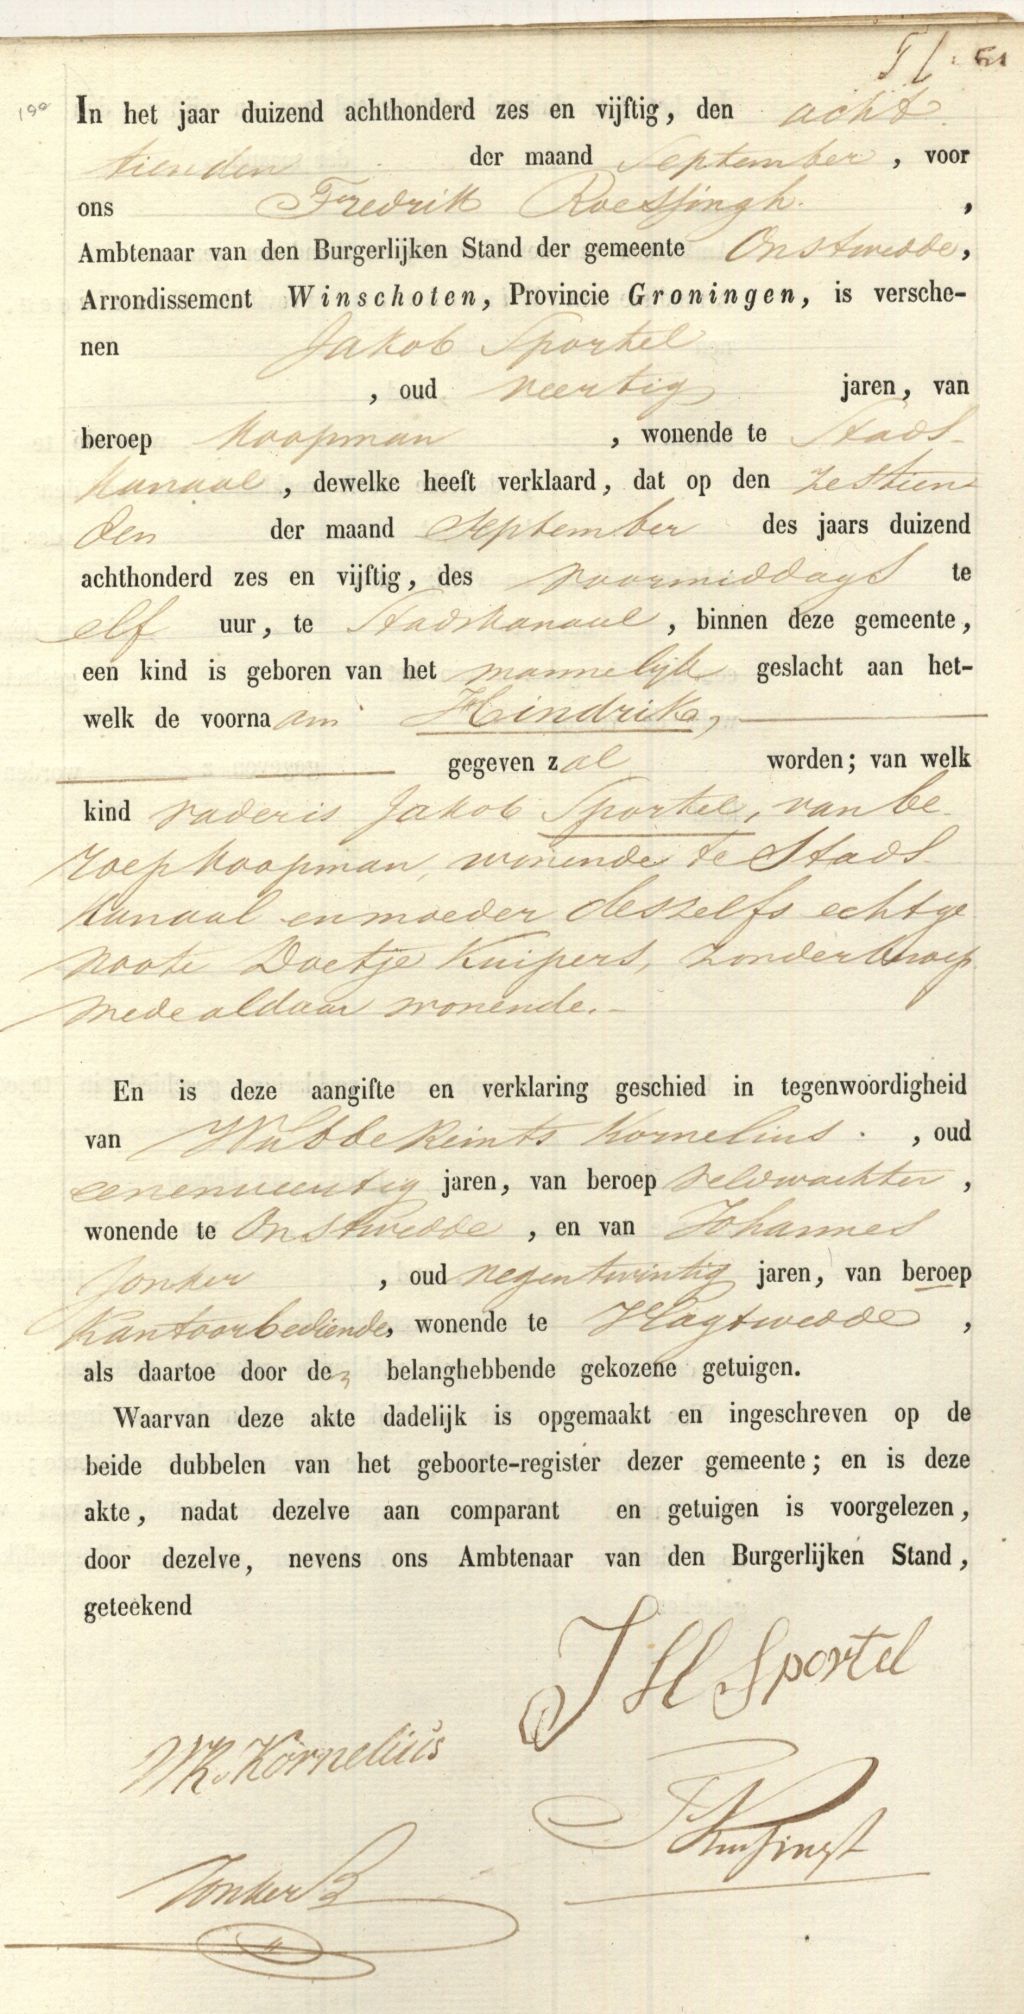 51
190
In het jaar duizend achthonderd zes en vijftig, den acht
tienden der maand September, voor
ons Fredrik Roessingh.,
Ambtenaar van den Burgerlijken Stand der gemeente Onstwedde,
Arrondissement Winschoten, Provincie Groningen, is versche-
nen Jakob Sportel
, oud veertig jaren, van
beroep Koopman, wonende te Stads-
Kanaal, dewelke heeft verklaard, dat op den zestien
den der maand September des jaars duizend
achthonderd zes en vijftig, des voormiddags te
elf uur, te Stadskanaal, binnen deze gemeente,
een kind is geboren van het mannelijk geslacht aan het-
welk de voornaam Hindrik,
gegeven zal worden; van welk
kind vader is Jakob Sportel, van be-
roep Koopman, wonende te Stads-
Kanaal en moeder deszelfs echtge
noote Doetje Kuipers, zonder beroep
mede aldaar wonende.-
En is deze aangifte en verklaring geschied in tegenwoordigheid
van Hubbe Reints Kornelius., oud
eenenveertig jaren, van beroep veldwachter,
wonende te Onstwedde, en van Johannes
Jonker, oud negentwintig jaren, van beroep
Kantoorbediende, wonende te Vlagtwedde,
als daartoe door den belanghebbende gekozene getuigen.
Waarvan deze akte dadelijk is opgemaakt en ingeschreven op de
beide dubbelen van het geboorte-register dezer gemeente; en is deze
akte, nadat dezelve aan comparant en getuigen is voorgelezen,
door dezelve, nevens ons Ambtenaar van den Burgerlijken Stand,
geteekend
J H Sportel
HR. Kornelius
F Roessingh
Jonker